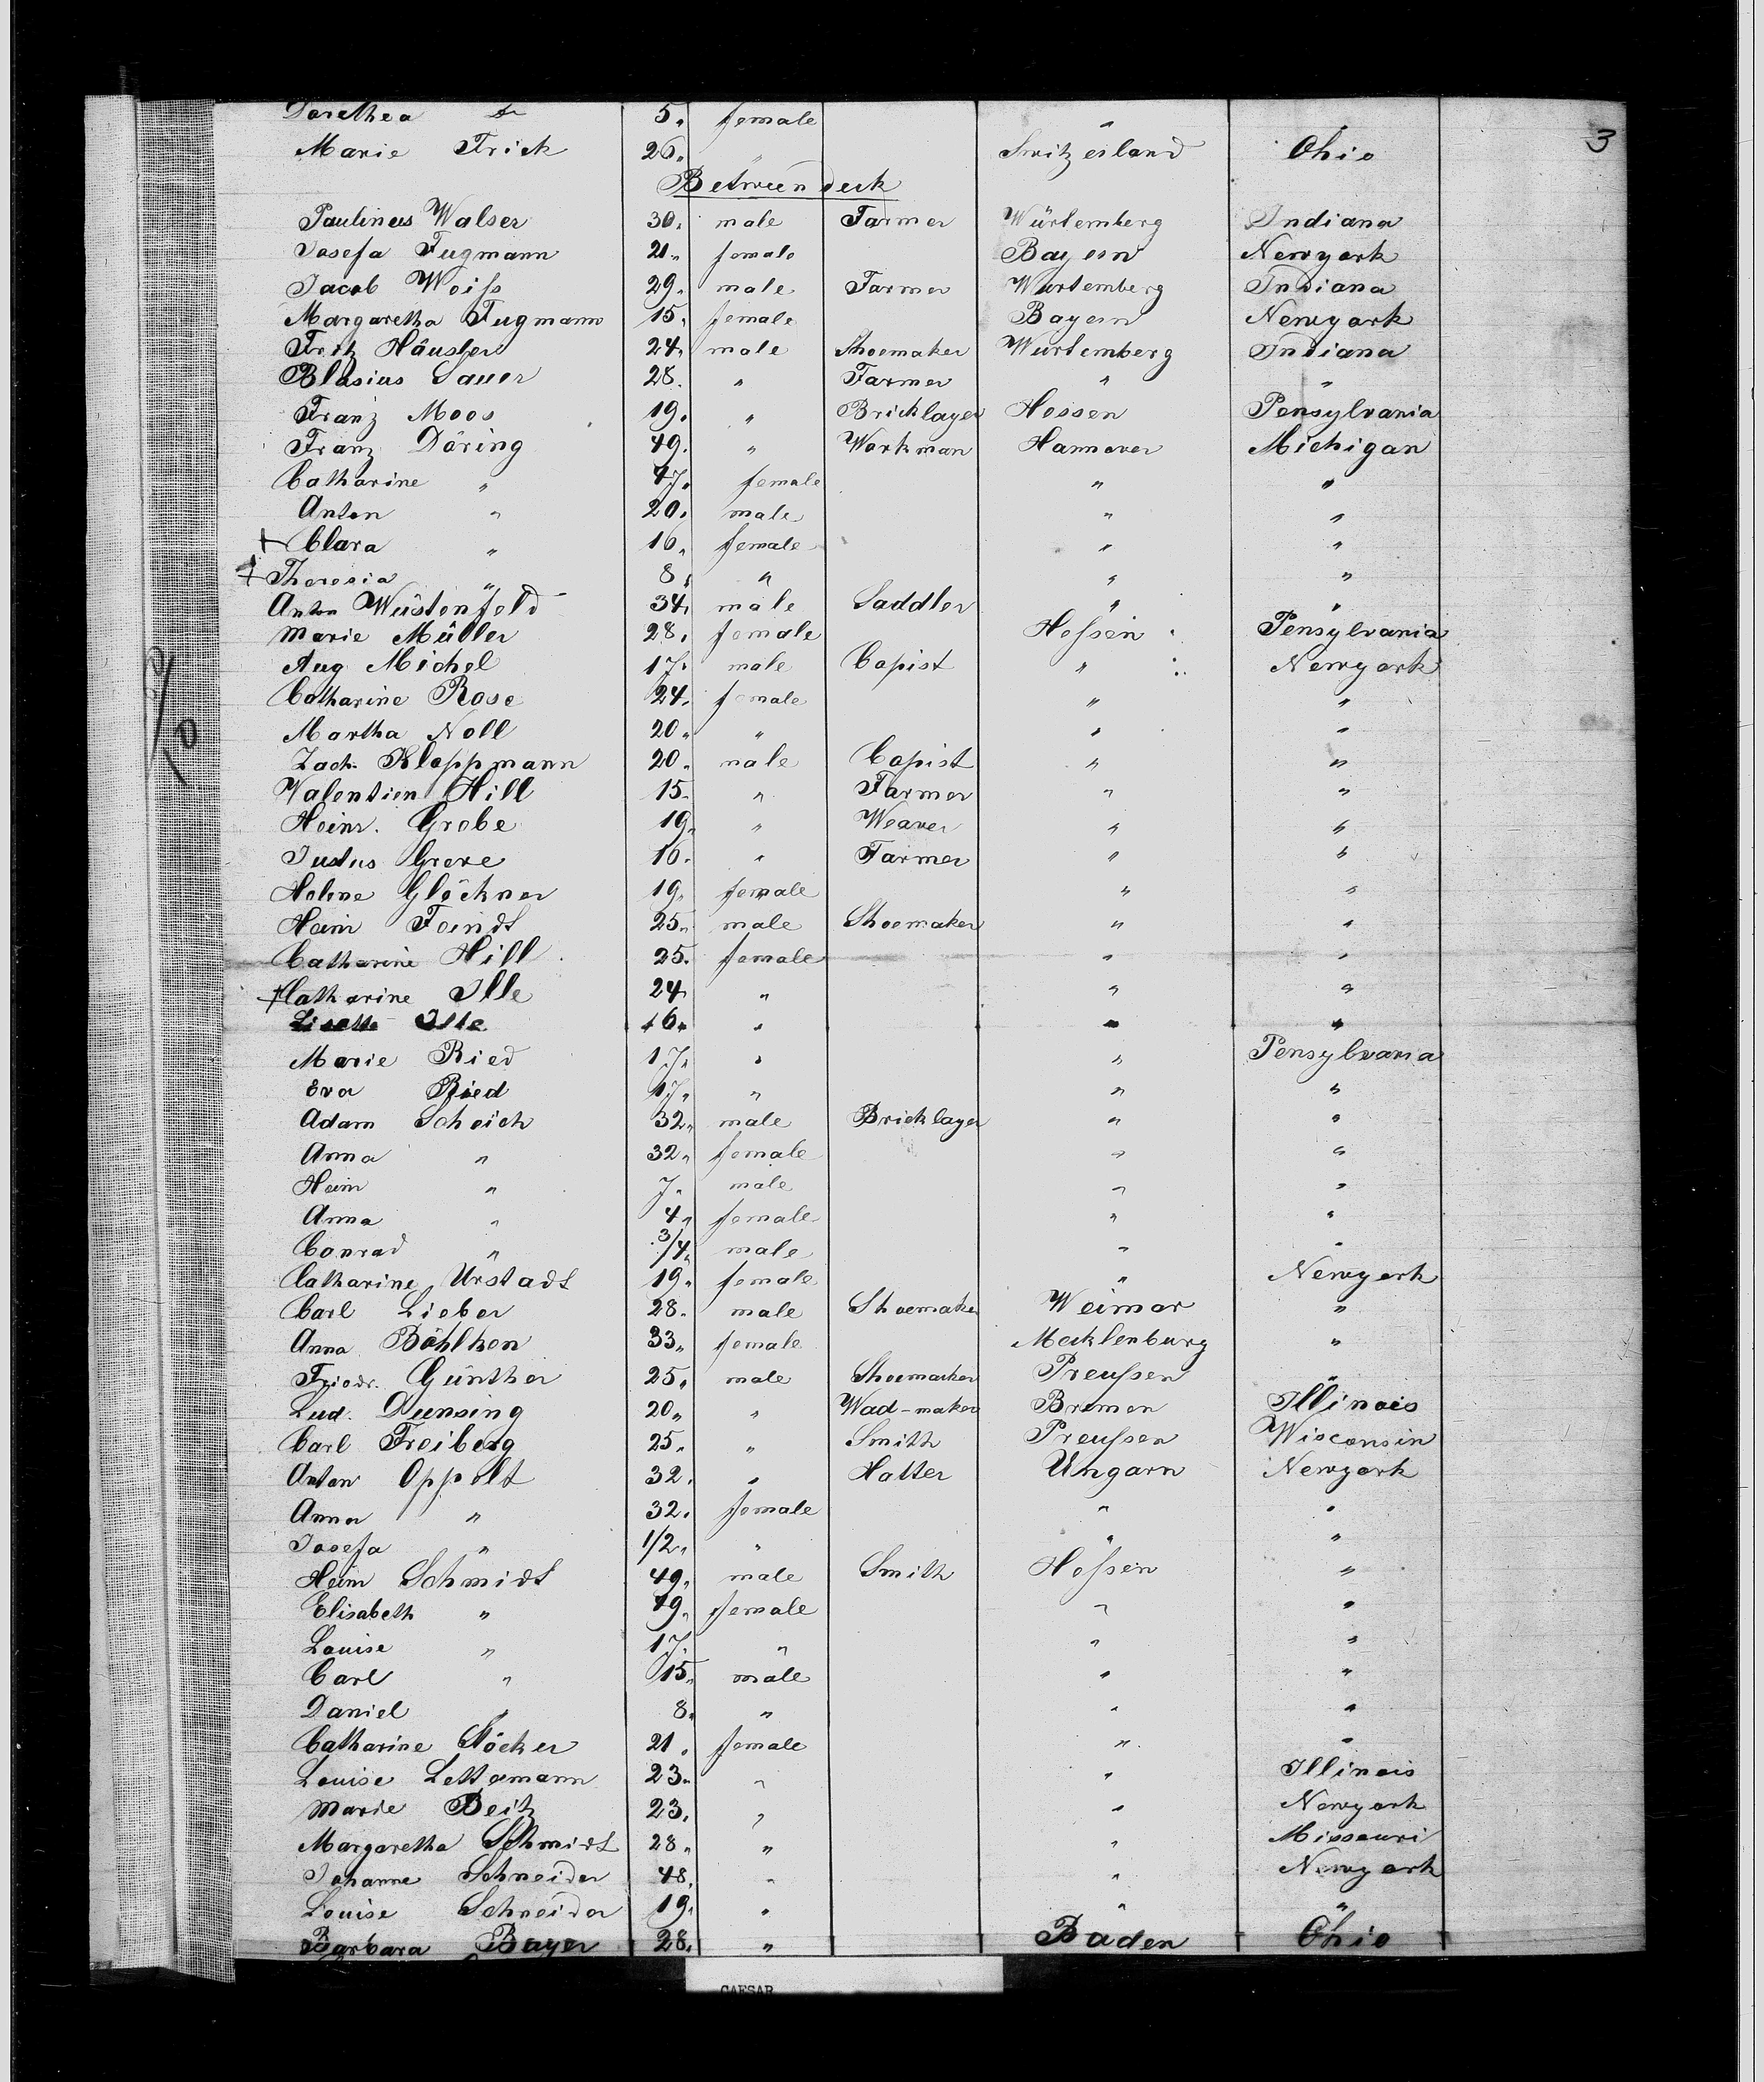 Dorethea do 5. female "
3
Marie Frick 26. " Switzerland Ohio
Between deck
Paulineus Walser 30. male Farmer Würtemberg Indiana
Josefa Fugmann 21. female Bayern Newyork
Jacob Weiſs 29. male Farmer Würtemberg Indiana
Margaretha Fugmann 15. female Bayern Newyork
Fritz Häusler 24. male Shoemaker Würtemberg Indiana
Blasius Sauer 28. " Farmer " "
Franz Moos 19. " Bricklayer Hessen Pensylvania
Franz Döring 49. " Workman Hannover Michigan
Catharine " 47. female " "
Anton " 20. male " "
Clara " 16. female " "
Theresia " 8. " " "
Anton Wüstenfeld 34. male Saddler " "
Marie Müller 28. female Heſsen Pensylvania
Aug Michel 17. male Copist " Newyork
Catharine Rose 24. female " "
Martha Noll 20. " " "
Zach. Kloppmann 20. male Copist " "
Valentien Hill 15. " Farmer " "
Heinr. Grebe 19. " Weaver " "
Justus Greve 16. " Farmer " "
Helene Glöckner 19. female " "
Heinr Feindt 25. male Shoemaker " "
Catharine Hill 25. female " "
Catharine Ille 24 " " "
Lisette Ille 16. " " "
Marie Ried 17. " " Pensylvania
Eva Ried 17. " " "
Adam Scheich 32. male Bricklayer " "
Anna " 32. female " "
Heinr " 7. male " "
Anna " 4. female " "
Conrad " 3/4. male " "
Catharine Urstadt 19. female " Newyork
Carl Lieber 28. male Shoemaker Weimar "
Anna Böhlken 33. female Mecklenburg "
Friedr. Günther 25. male Shoemaker Preuſsen "
Lud. Dunsing 20. " Wad-maker Bremen Illinois
Carl Freiberg 25. " Smith Preuſsen Wisconsin
Anton Oppelt 32. " Hatter Ungarn Newyork
Anna " 32. female " "
Josefa " 1/2. " " "
Heinr Schmidt 49. male Smith Heſsen "
Elisabeth " 49. female " "
Louise " 17. " " "
Carl " 15. male " "
Daniel " 8. " " "
Catharine Stöcker 21. female " "
Louise Lettermann 23. " " Illinois
Marie Beitz 23. " " Newyork
Margaretha Schmidt 28. " " Missouri
Johanne Schneider 48. " " Newyork
Louise Schneider 19. " " "
Barbara Bayer 28. " Baden Ohio
CAESAR